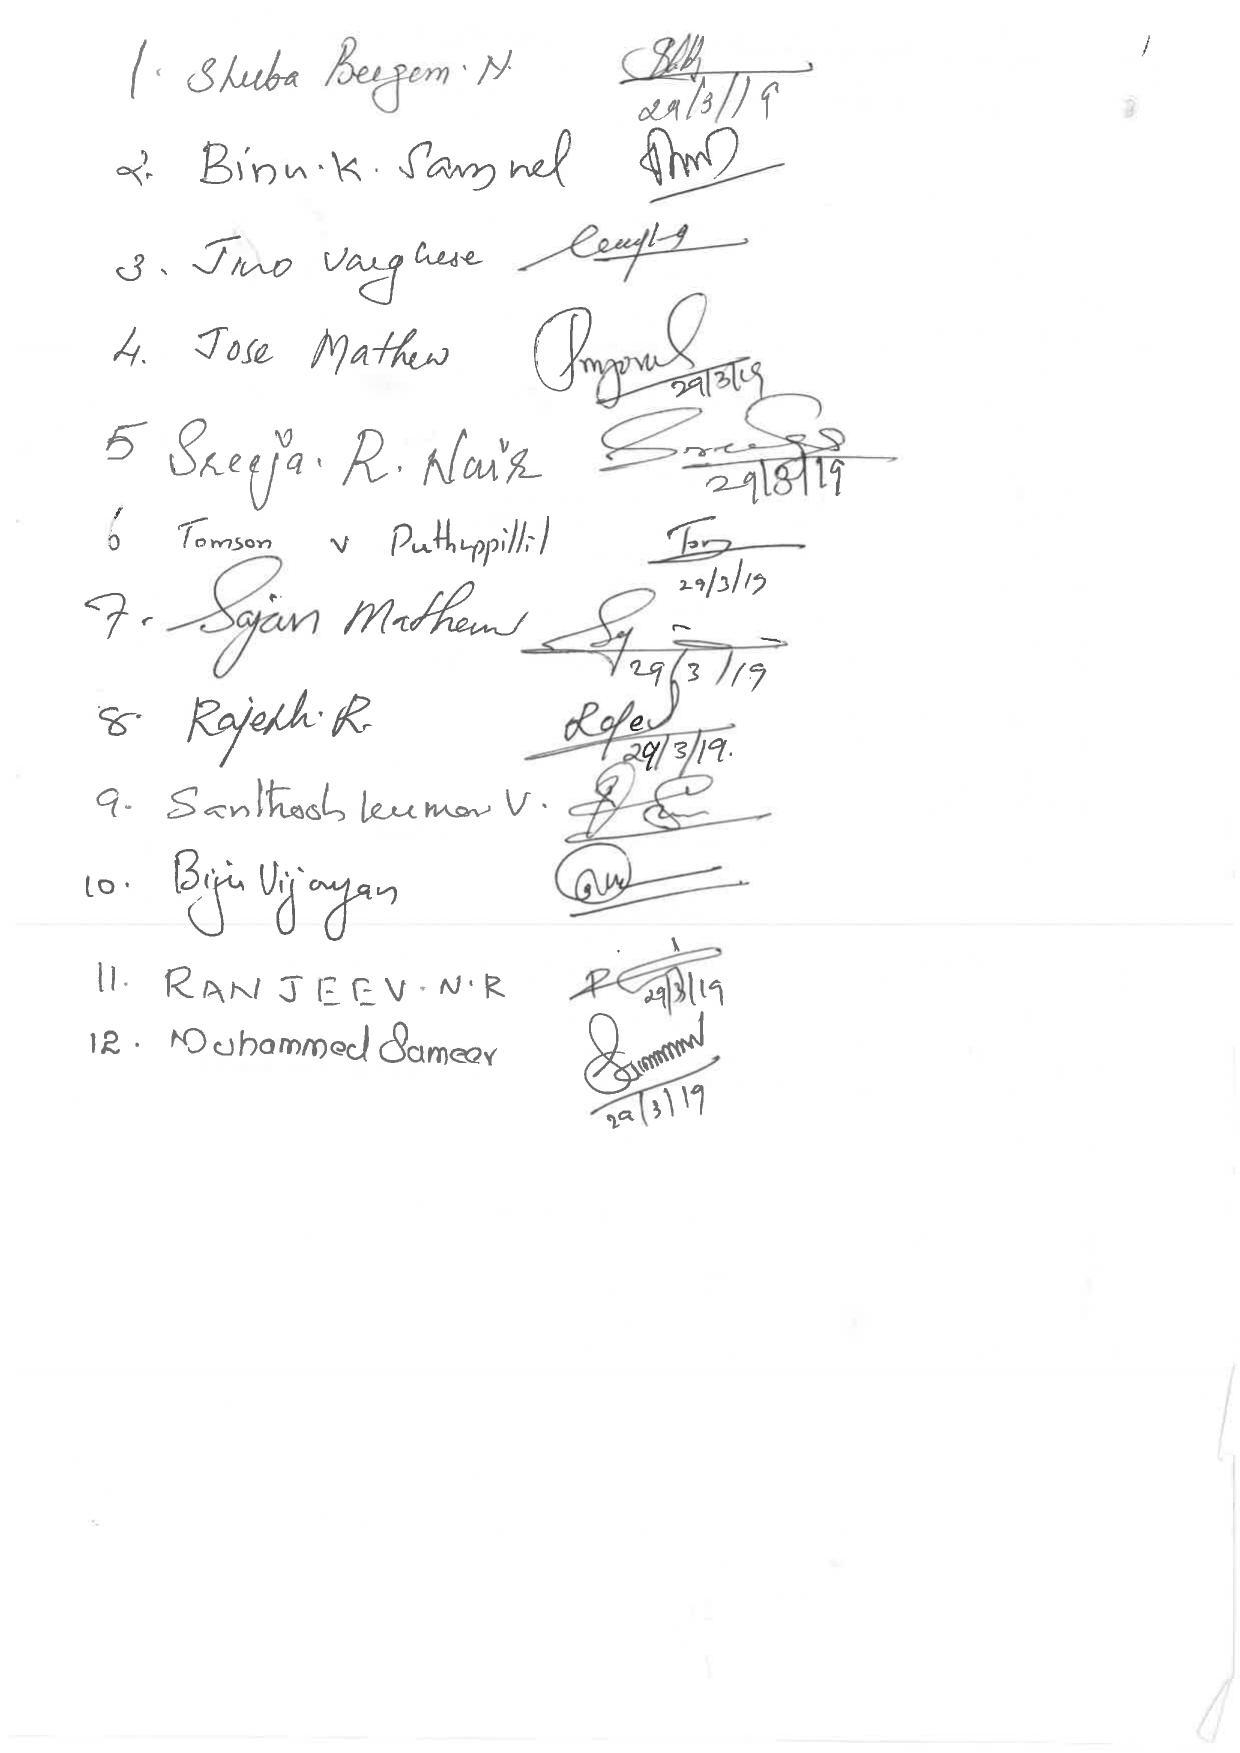 1. Sheeba Beegem. N. 29/3/19
2. Binu. K. Samuel
3. Jino Varghese
4. Jose Mathew 29/3/19
5 Sreeja. R. Naik 29/3/19
6 Tomson v Puthuppillil Tom
29/3/19
7. Sajan Mathew
29/3/19
8. Rajesh. R.
29/3/19.
9. Santhosh kumar V.
10. Biju Vijayan
11. RANJEEV. N. R 29/3/19
12. Muhammed Sameer
29/3/19